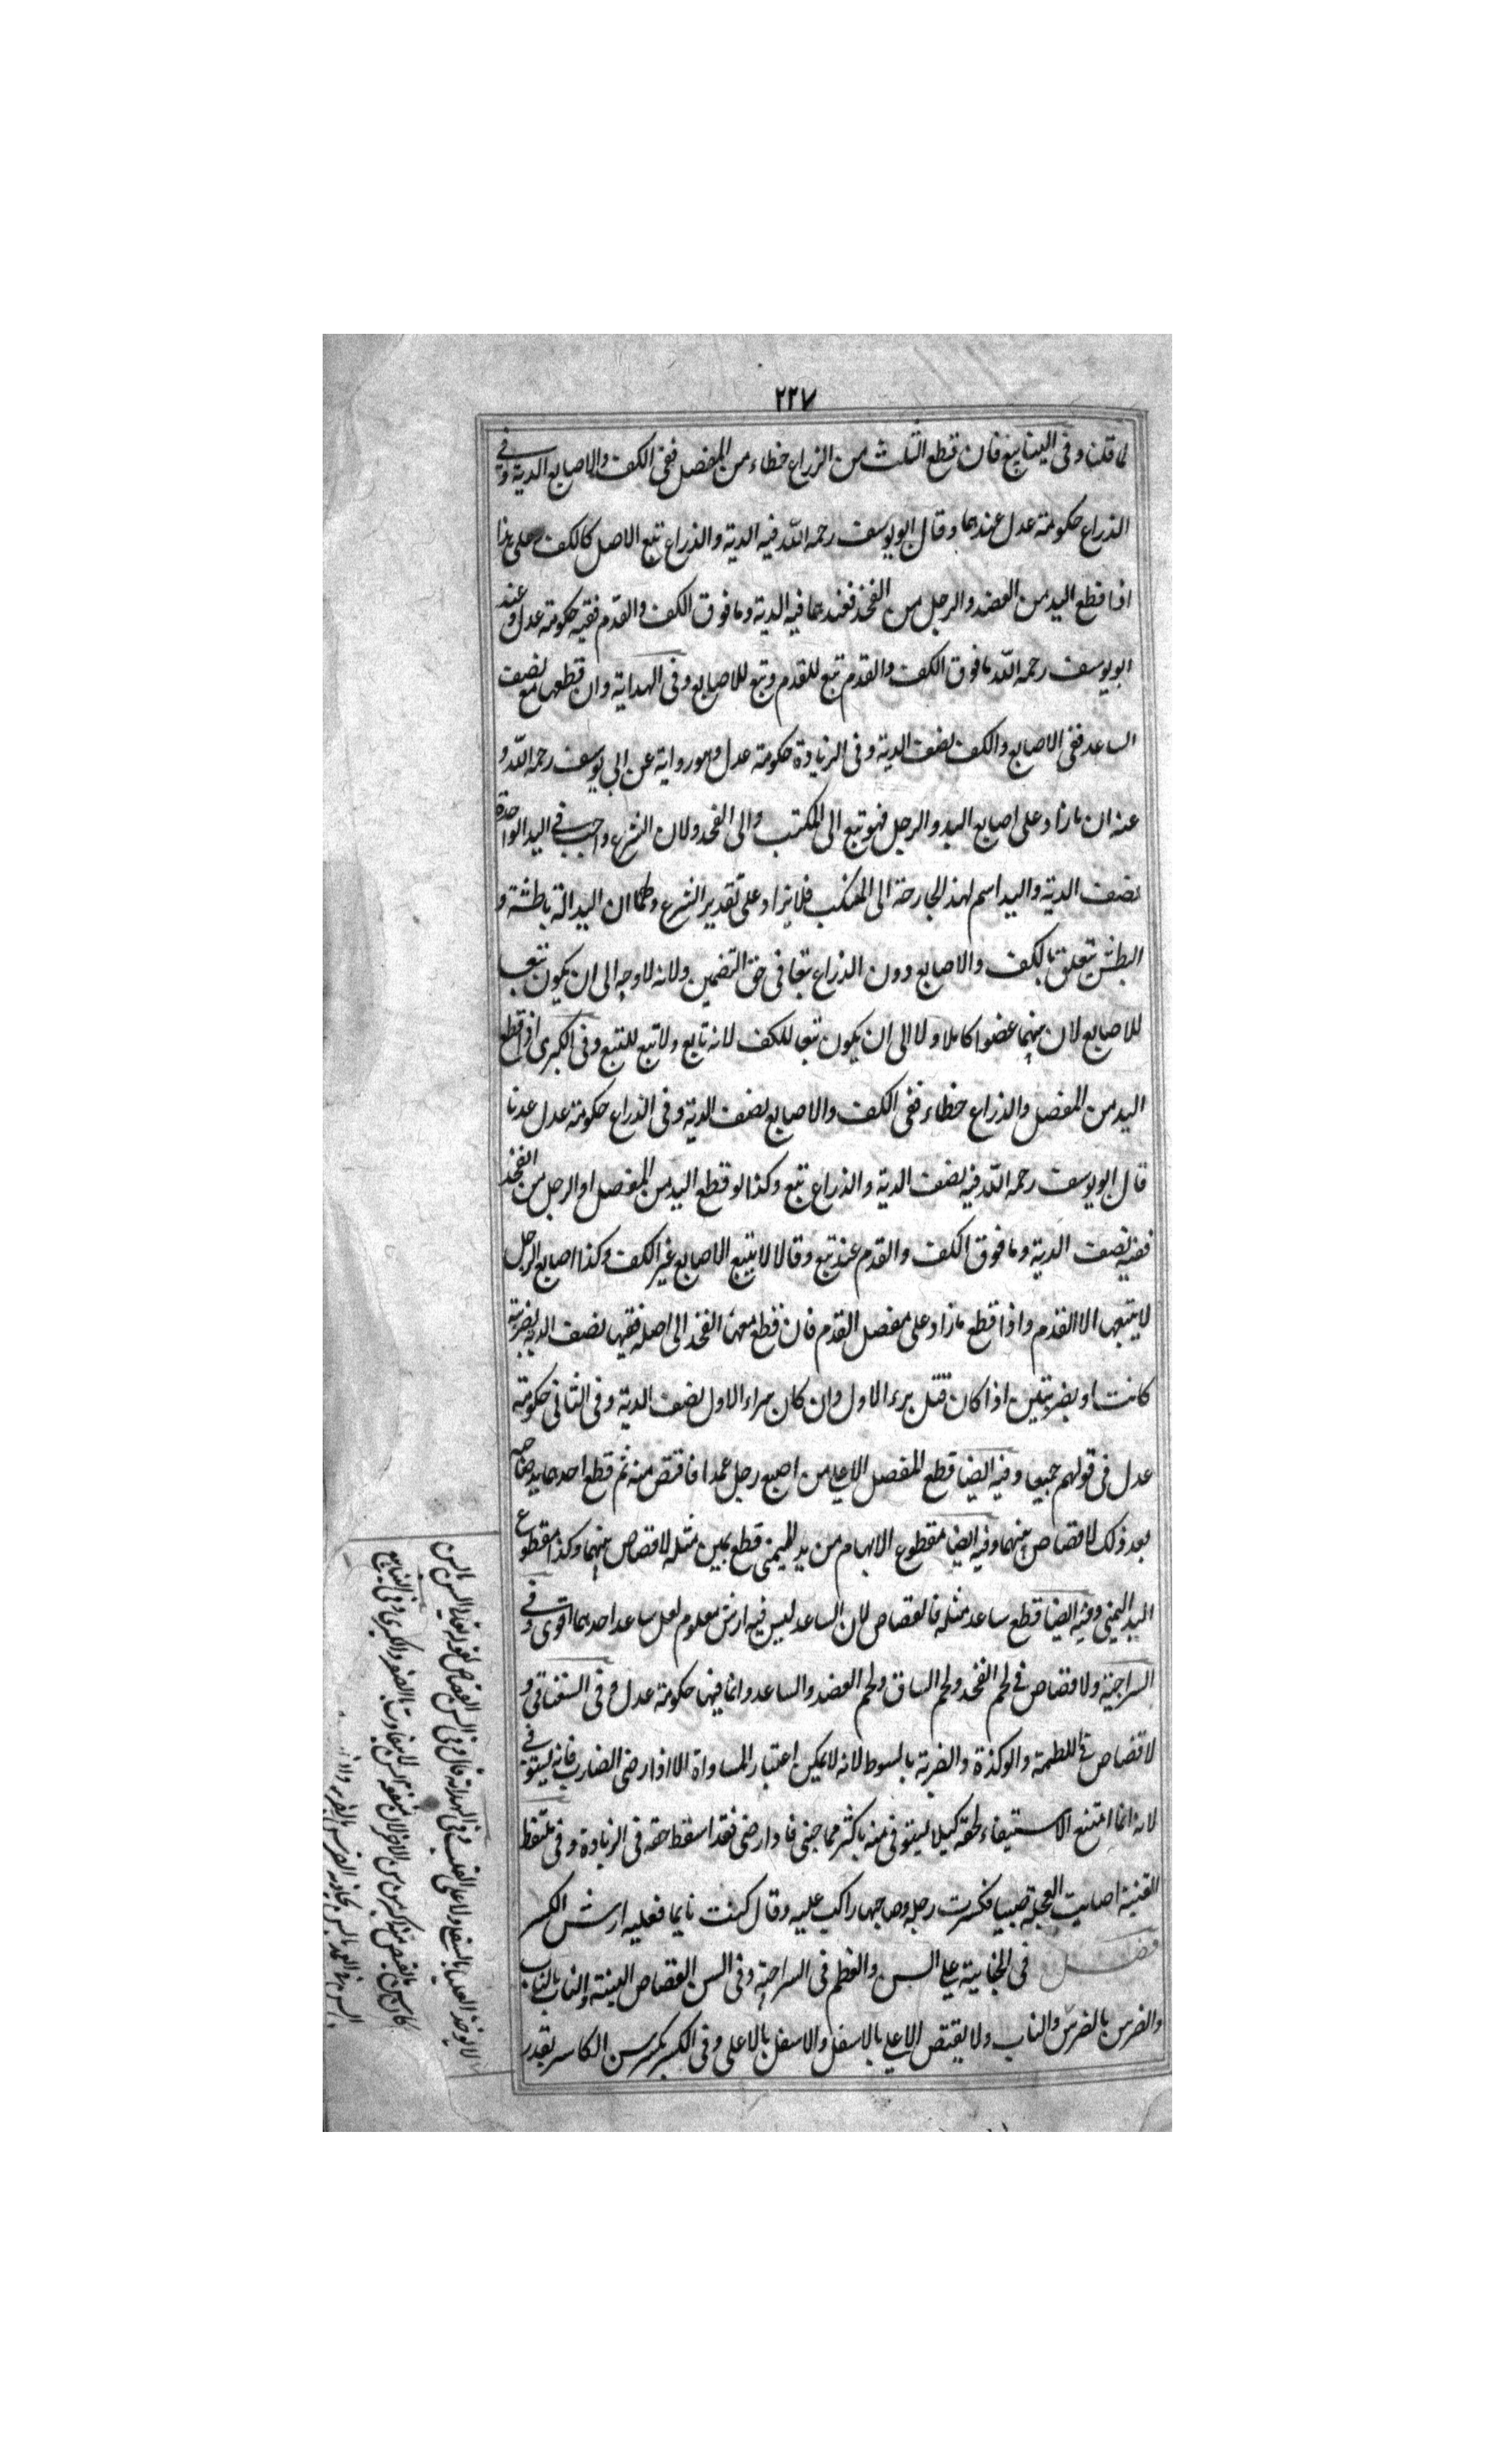 ٢٢٧
لما قلنا وفى الينابيع فان قطع الثلث من الزراع خطاء من المفصل ففى الكف والاصابع الدية وفى
الذراع حكومة عدل عندهما وقال ابويوسف رحمه الله فيه الدية والذراع تبع الاصل كالكف وعلى هذا
اذا قطع اليد من العضد والرجل من الفخذ فعندهما فيه الدية وما فوق الكف والقدم ففيه حكومة عدل وعند
ابويوسف رحمه الله ما فوق الكف والقدم تبع للقدم وتبع للاصابع وفى الهداية وان قطعها مع نصف
الساعد ففى الاصابع والكف نصف الدية وفى الزيادة حكومة عدل وهو رواية عن ابى يوسف رحمه الله و
عنه ان ما زاد على اصابع اليد والرجل فهو تبع الى المكتب والى الفخد ولان الشرع واجب فى اليد الواحدة
نصف الدية واليد اسم لهذ الجارحة الى المنكب فلا يزاد على تقدير الشرع ولهما ان اليد الة باطشة و
البطش يتعلق بالكف والاصابع دون الذراع تبعا فى حق التضمين ولانه لا وجه الى ان يكون تبعا
للاصابع لان بينهما عضوا كاملا ولا الى ان يكون تبعا للكف لانه تابع ولا تبع للتبع وفى الكبرى اذا قطع
اليد من المفصل والذراع خطاء ففى الكف والاصابع نصف الدية وفى الذراع حكومة عدل عدنا
قال ابويوسف رحمه الله فيه نصف الدية والذراع تبع وكذا لو قطع اليد من المفصل او الرجل من الفخذ
ففيه نصف الدية وما فوق الكف والقدم عنده تبع وقالا لا يتبع الاصابع غير الكف وكذا اصابع الرجل
لا يتبعها الا القدم واذا قطع ما زاد على مفصل القدم فان قطع معها الفخذ الى اصله ففيها نصف الدية بضربة
كانت او بضربتين اذا كان قبل برء الاول وان كان براء الاول نصف الدية وفى الثانى حكومة
عدل فى قولهم جميعا وفيه ايضا قطع المفصل الاعلى من اصبع رجل عمدا فاقتص منه ثم قطع احدهما يد صاحبه
بعد ذلك لا قصاص بينهما وفيه ايضا مقطوع الابهام من يد اليمنى قطع يمين مثله لا قصاص بينهما وكذا مقطوع
اليد اليمنى وفيه ايضا قطع ساعد مثله فالقصاص لان الساعد ليس فيه ارش معلوم لعل ساعد احدهما اقوى وفى
السراجية ولا قصاص فى لحم الفخد ولحم الساق ولحم العضد والساعد وانما فيها حكومة عدل وفى السغناقى و
لا قصاص فى اللطمة والوكذة والضربة بالسوط لانه لا يمكن اعتبار المساواة الا اذا رضى الضارب فانه يستوفى
لانه انما امتنع الاستيفاء لحقه كيلا يستوفى منه باكثر مما جنى فاذا رضى فقد اسقط حقه فى الزيادة وفى ملتقط
القنية اصابت العجلة صبيا فكسرت رجله وصاحبها راكب عليه وقال كنت نايما فعليه ارش الكسر
فصل فى الجناية على السن والعظم فى السراجية وفى السن القصاص البينة والناب بالناب
والضرس بالضرس والناب ولا يقتص الاعلى بالاسفل والاسفل بالاعلى وفى الكسر يكسر سن الكاسر بقدر